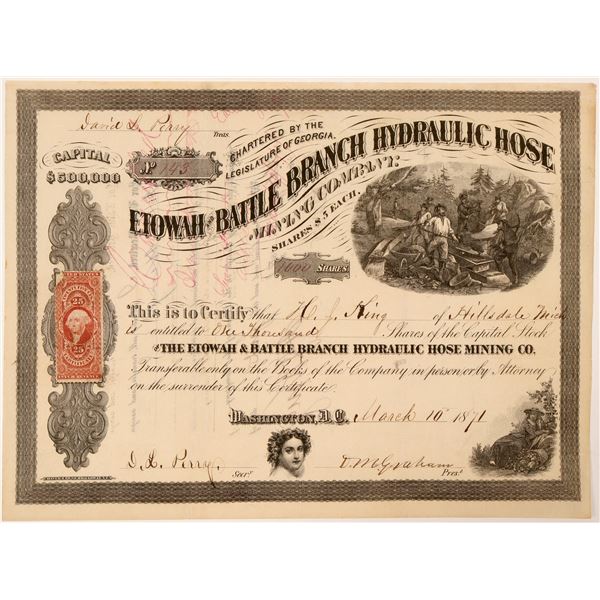 David L. Perry
Treas.
CAPITAL
$500,000
No 143
CHARTERED BY THE
LEGISLATURE OF GEORGIA.
ETOWAH AND BATTLE BRANCH HYDRAULIC HOSE
MINING COMPANY.
SHARES $5 EACH.
1000 SHARES
UNITED STATES
25 25
This is to Certify that H. J. King of Hillsdale Mich
is entitled to One Thousand Shares of the Capital Stock
of THE ETOWAH & BATTLE BRANCH HYDRAULIC HOSE MINING CO.
Transferable only on the Books of the Company in person or by Attorney
on the surrender of this Certificate.
WASHINGTON, D.C. March 10 1871
D. L. Perry Secry
D. M. Graham Prest